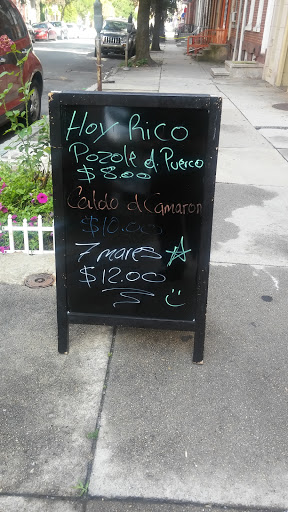 Hoy Rico
Pozole d. Puerco
$8.00
Caldo d Camaron
$10.00
7 mares
$12.00